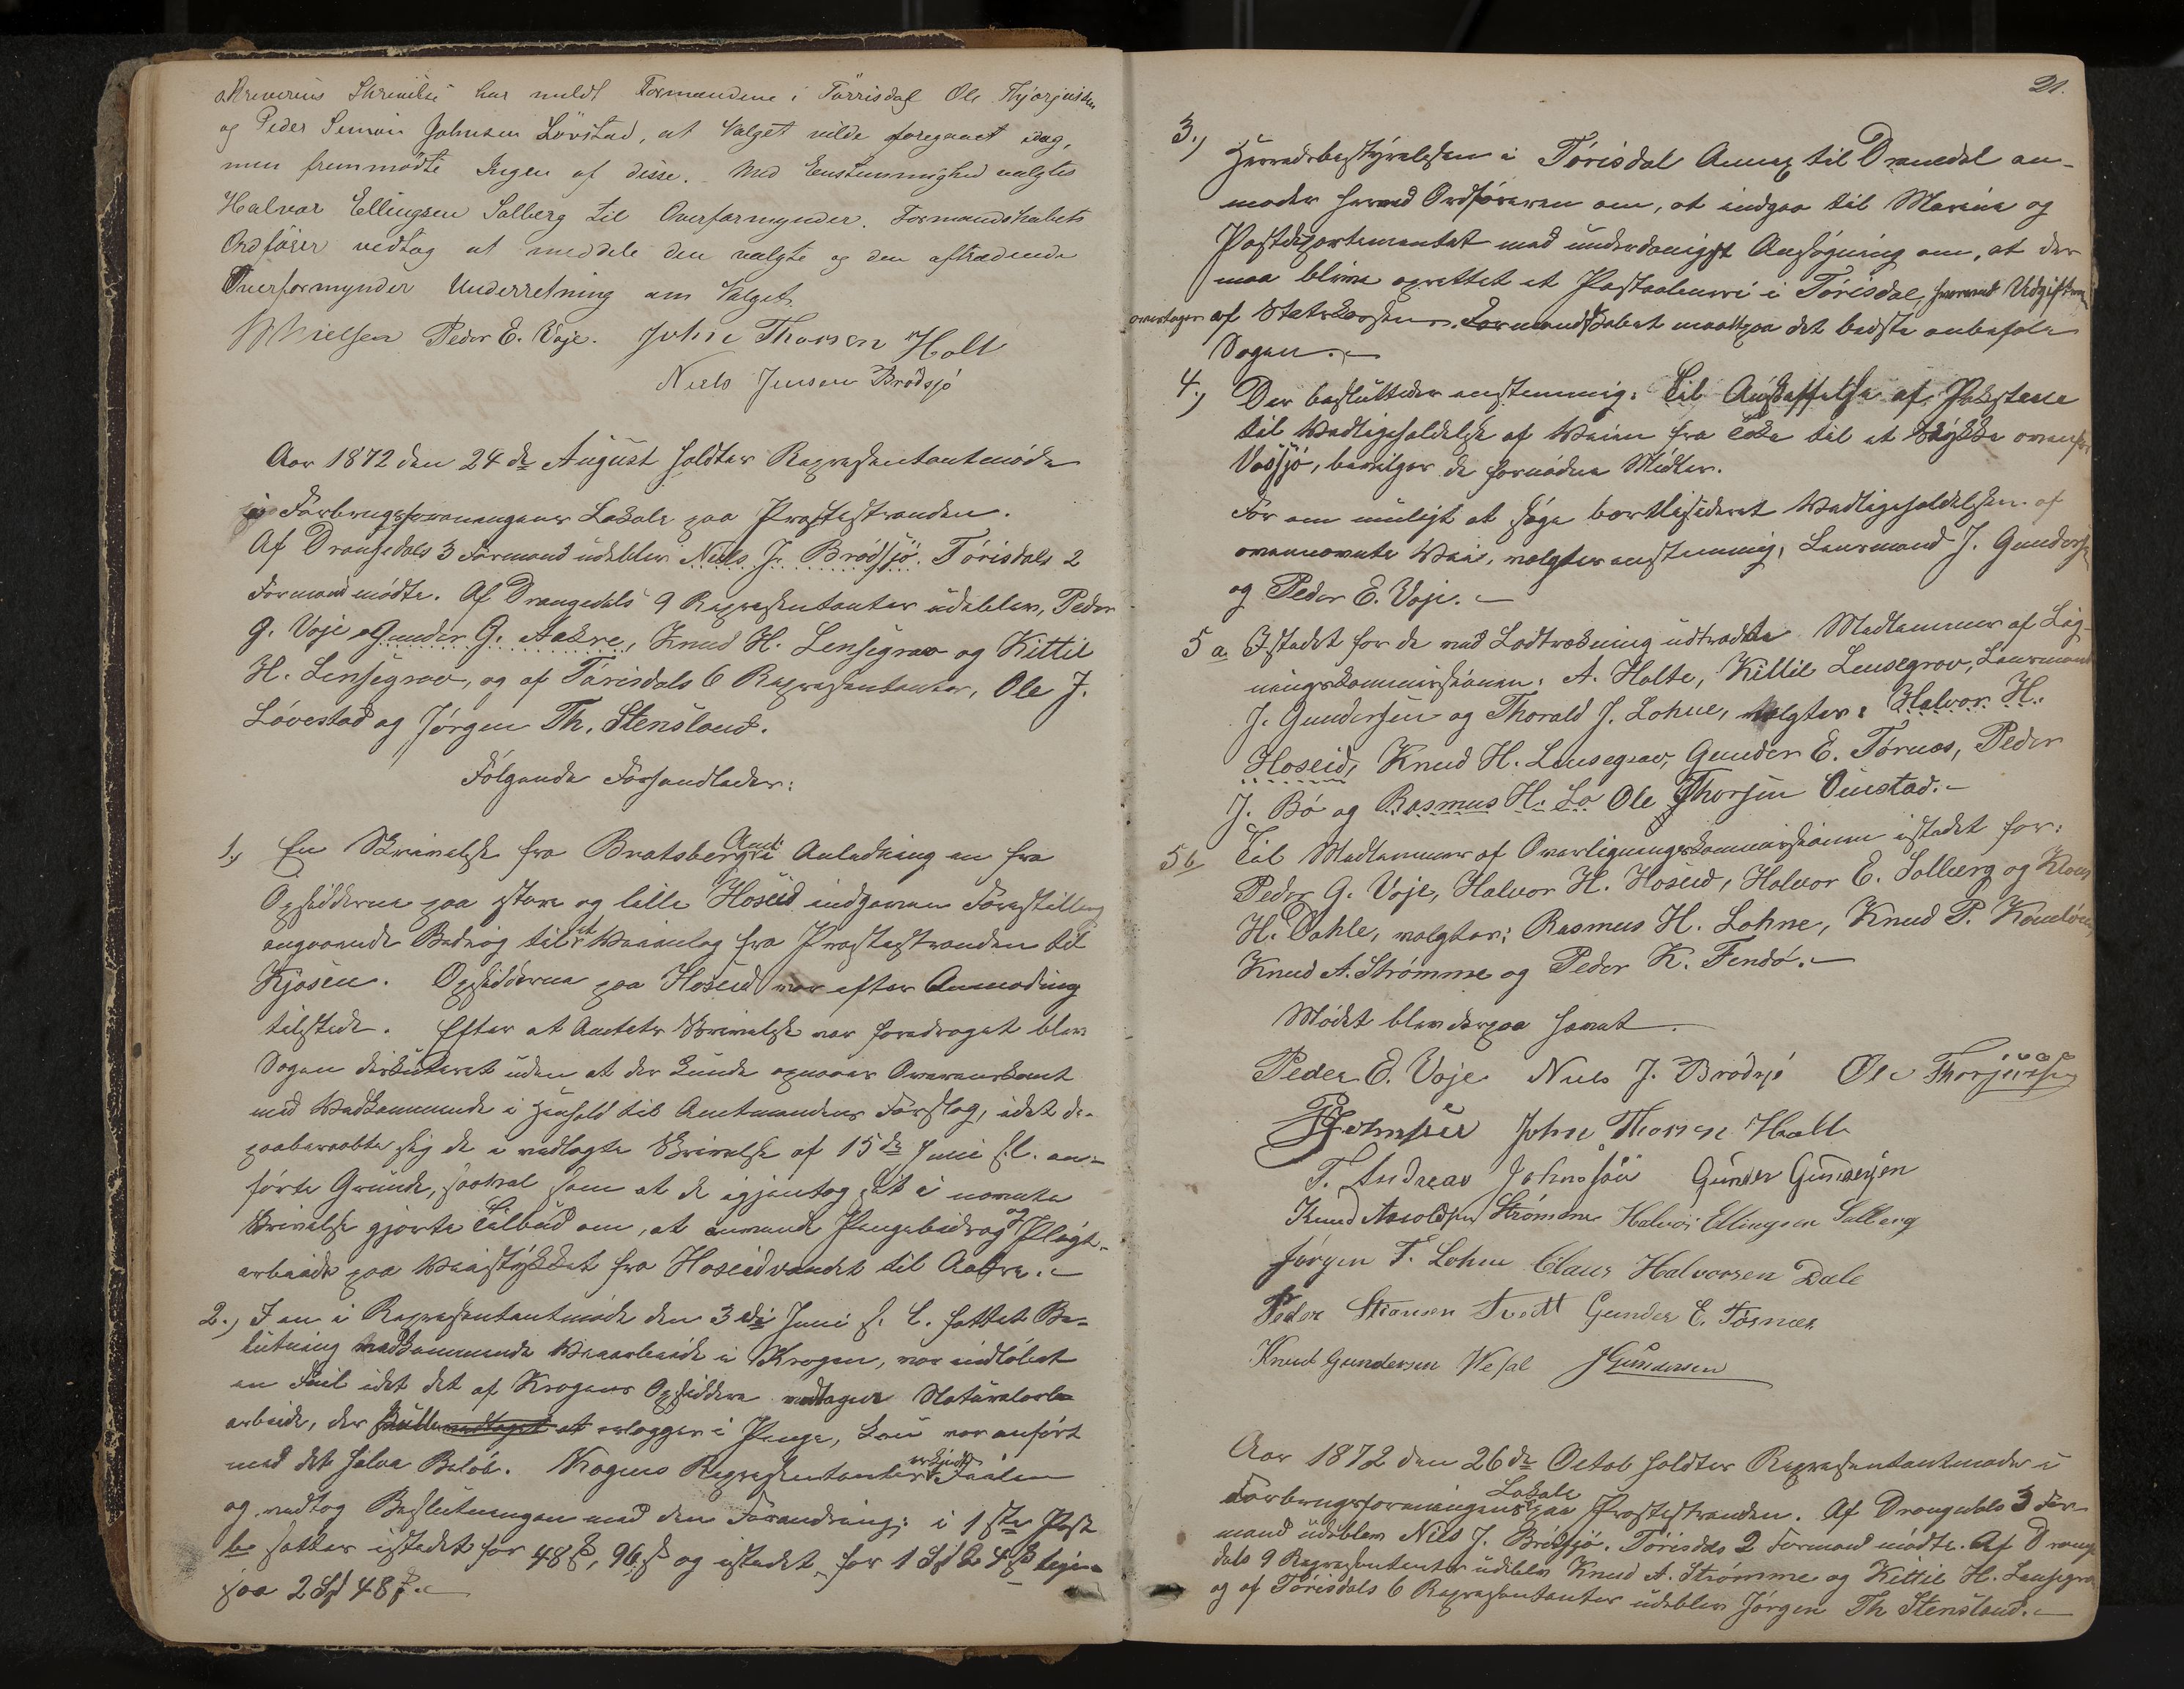 Skrivelse har meldt Formændene i Törrisdal Ole Thorjussen
og Peder Simon Johnsen Lövstad, at Valget vilde foregaaet idag,
men fremmödte Ingen af disse. Med Eenstemmighed valgtes
Halvor Ellingsen Solberg til Overformynder. Formandskabets
Ordförer vedtog at meddele den valgte og den aftrædende
Overformynder Underretning om Valget.
Nielsen Peder E. Voje. John Thorsen Holt
Niels Jensen Brödsjö
Aar 1872 den 24de August holdtes Repræsentantmöde
i Forbrugsforeningens Lokale paa Præstestranden.
Af Drangedals 3 Formænd udeblev Niels J. Brödsjö. Törisdals 2
Formænd mödte. Af Drangedals 9 Repræsentanter udeblev, Peder
G. Voje, Gunder G. Aakre, Knud H. Lensegrav og Kittil
H. Lensegrav, og af Törisdals 6 Repræsentanter, Ole J.
Lövestad og Jörgen Th. Stensland.
Fölgende Forhandledes:
1.) En Skrivelse fra Bratsberg Amt i Anledning en fra
Opsidderne paa store og lille Hoseid indgiven Forestilling
angaaende Bidrag til et Veianlæg fra Præstestranden til
Kjosen. Opsidderne paa Hoseid var efter Anmodning
tilstede. Efter at Amtets Skrivelse var foredraget blev
Sagen diskuteret uden at der kunde opnaaes Overenskomst
med Vedkommende i Henhold til Amtmandens Forslag, idet de
paaberaabte sig de i vedlagte Skrivelse af 15de Juni s.l. an-
förte Grunde, saavel som at de igjentog det i nævnte
Skrivelse gjorte Tilbud om, at Pengebidrag og Pligt-
arbeide paa Veistykket fra Hoseidvandet til Aakre.
2.) I en i Repræsentantmöde den 3die Juni s. l. fattet Be-
slutning vedkommende Veiarbeide i Krogen, var indlöbet
en Feil idet det af Krogens Opsiddere vedtagne Naturalar-
arbeide, der erlægges i Penge, kun var anfört
med det halve Belöb. Repræsentanter Feilen
og vedtog Beslutningen med den Forandring: i 1ste Post
sættes istedet for 48 ß, 96 ß og istedet for 1 Spd 24 ß
paa 2 Spd 48 ß.
21.
3.) Herredsbestyrelsen i Törisdal Annex til Drangedal an-
moder herved Ordföreren om, at indgaa til Marine og
Postdepartementet med underdanigst Ansögning om, at der
maa blive oprettet et Postaabneri i Törisdal, hvorved Udgiften
overtages af Statskassen. Formandskabet maatte paa det bedste anbefale
Sagen.
4.) Der besluttedes enstemmig: Til Anskaffelse af Pukstene
til Vedligeholdelse af Veien fra Toke til et Stykke ovenfor
Vassjö, bevilges de fornödne Midler.
For om muligt at söge bortliciteret Vedligeholdelsen af
ovennævnte Vei, valgtes enstemmig, Lensmand J. Gundersen
og Peder E. Voje.
5 a. Istedet for de ved Lodtrækning udtrædte Medlemmer af Lig-
ningskommissionen: A. Holte, Kittil Lensegrav, Lensmand
J. Gundersen og Thorald J. Lohne, valgtes: Halvor H.
Hoseid, Knud H. Lensegrav, Gunder E. Törnæs, Peder
J. Bö og Rasmus H. Lo Ole Thorsen Ouestad.
5 b Til Medlemmer af Overligningskommissionen istedet for:
Peder G. Voje, Halvor H. Hoseid, Halvor E. Solberg og Klaus
H. Dahle, valgtes: Rasmus H. Lohne, Knud P.
Knud A. Strömme og Peder K. Fendö.
Mödet blev derpaa hævet.
Peder E. Voje Niels J. Brödsjö Ole Thorjussen
John Thorsen Holt
T. Andreas Johnssön Gunder Gundersen
Knud Aasoldsen Strömme Halvor Ellingsen Solberg
Jörgen T. Lohne Claus Halvorsen Dale
Peder Tvedt Gunder E. Törnes
Knud Gundersen Wefal JGundersen
Aar 1872 den 26de Octob holdtes Repræsentantmöde i
Forbrugsforeningens Lokale paa Præstestranden. Af Drangedals 3 For-
mænd udeblev Niels J. Brödsjö. Törisdals 2 Formænd mödte. Af Drange
dals 9 Repræsentanter udeblev Knud A. Strömme og Kittil H. Lensegrav
og af Törisdals 6 Repræsentanter udeblev Jörgen Th Stensland.